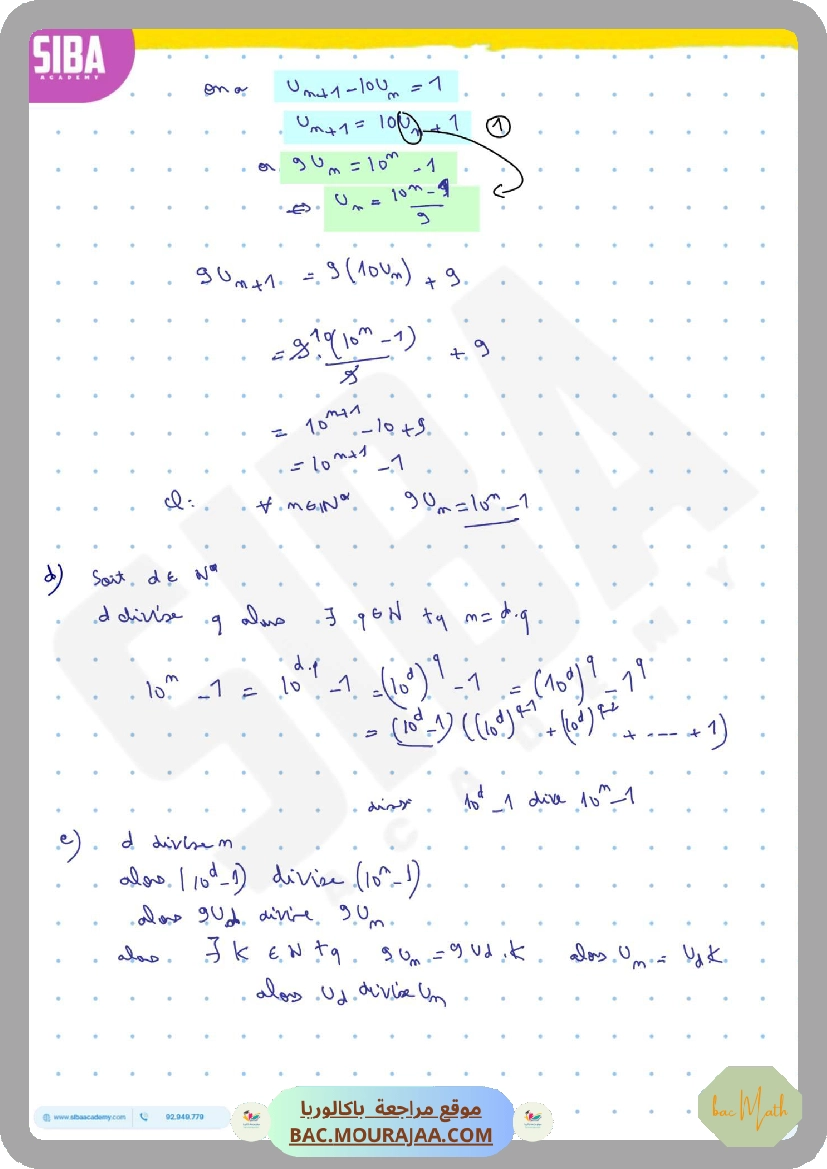 SIBA
ACADEMY
on a U_{n+1} - 10U_n = 1
U_{n+1} = 10U_n + 1 ①
or 9U_n = 10^n - 1
⇔ U_n = \frac{10^n - 1}{9}
9U_{n+1} = 9(10U_n) + 9
= \frac{9 \cdot 10(10^n - 1)}{9} + 9
= 10^{n+1} - 10 + 9
= 10^{n+1} - 1
Cl: ∀ n ∈ ℕ* 9U_n = 10^n - 1
b) Soit d ∈ ℕ*
d divise q alors ∃ q ∈ ℕ tq n = d.q
10^n - 1 = 10^{d.q} - 1 = (10^d)^q - 1 = (10^d)^q - 1^q
= (10^d - 1)((10^d)^{q-1} + (10^d)^{q-2} + ---- + 1)
10^d - 1 dive 10^n - 1
c) d divise n
alors (10^d - 1) divise (10^n - 1)
alors 9Ud divise 9U_n
alors ∃ K ∈ ℕ tq 9U_n = 9Ud.K alors U_n = U_d K
alors U_d divise U_n
www.sibaacademy.com 92.949.779
موقع مراجعة باكالوريا
BAC.MOURAJAA.COM
bac Math